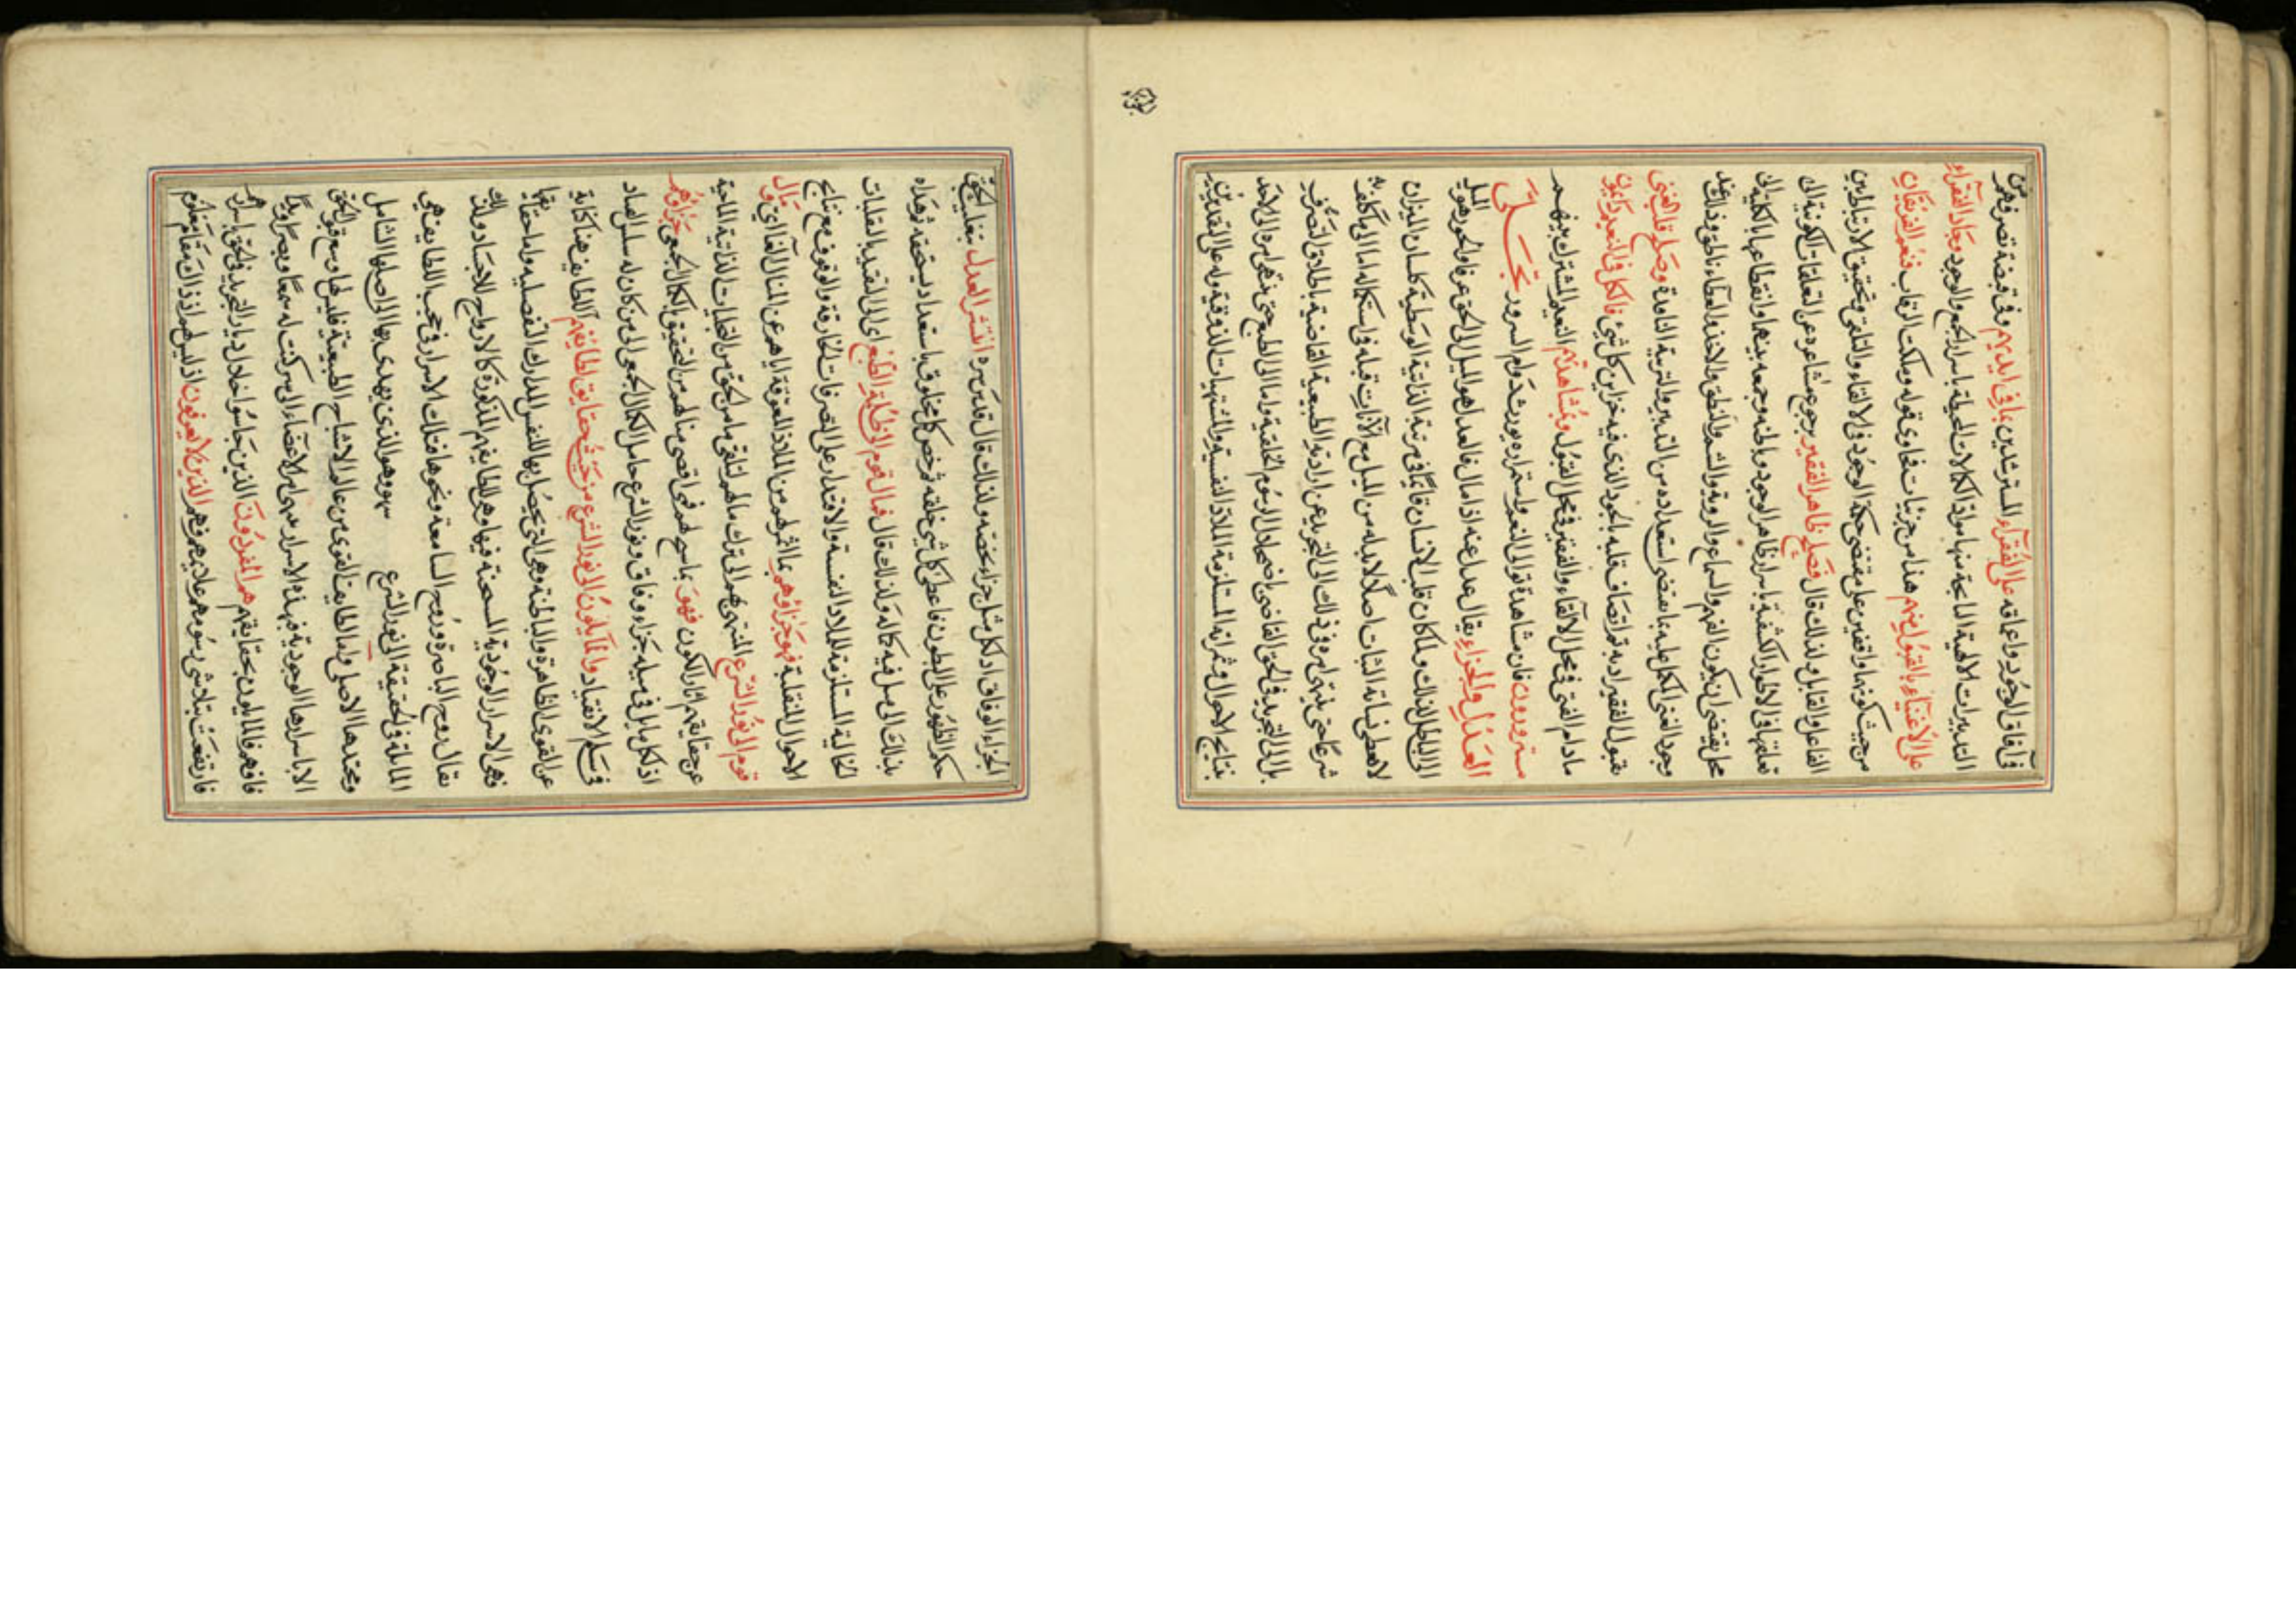 في آفاق الوجود واعماقه على الفقراء المسترشدين بما في ايديهم وفي قبضة تصرفهم من
التدبيرات الالهية الناتجة منها مواد الكمالات المحيطة باسرار الجمع والوجود وجاد الفقراء
على الاغنياء بالقبول منهم هذا من جزئيات فحاوى قوله وملكت الرقاب فنعم الفريقان
من حيث كونهما واقفين على مقتضى حكمة الوجود في الالقاء والتلقي وتحقيق الارتباط بين
الفاعل والقابل ولذلك قال فصل ظاهر الفقير برجوع مشاعره عن التعلقات الكونية الى
تعلقها في الاطوار الكشفية باسرار ظاهر الوجود وباطنه وجمعه بينهما وانقطاعها بالكلية الى
محل يقتضي ان يكون الفهم والسماع والروية والشم والنطق والاخذ والعطاء ناطق وذائق عند
وجود الغنى الكل عليه بما يقتضى استعداده من التدبير والتربية النافدة وصل قلب الغنى
بقبول الفقير ادبه ثم اتصاف قلبه بالجود الذي فيه خزاين كل شئ فالكل في النعيم دايمون
ما دام الغنى في محل الالقاء والفقير في محل القبول وبمشاهدتهم النعيم المشترك بينهم
مسرورون فان مشاهدة توالي النعم واستمراره يورث دوام السرور تجلي
العدل والجزاء يقال عدل عنه اذا مال فالعدل هو الميل الى الحق عرفا والجور هو الميل
الى الباطل كذلك ولما كان قلب الانسان قائما في مرتبة الذاتية الوسطية كلسان الميزان
لا يعطى نشأته الثبات اصلا لا بد له من الميل مع الآنات قبله في استكماله اما الى ما كلف به
شرعا حتى ينتهى امره في ذلك الى التجريد عن ارادته الطبيعية القاضية باطلاق التصرف
بل الى التجريد في الحق القاضى باضمحلال الرسوم الخلقية واما الى الطبع حتى ينتهى امره الى الاخلاد
بنتايج الاحوال وثمراته المستلزمة اللذة النفسية والمشتهيات الذوقية وله على التقديرين
الجزاء الوفاق اذ لكل مثل جزاء يخصه ولذلك قال قدس سره انتشر العدل بتغليب الحق
حكم الظهور على البطون فاعطى كل شئ خلقه ثم خص كل مخلوق باستعداد يستحقه ثم هداه
بذلك الى ميل فيه كماله ولذلك قال فمال قوم الى ظلمة الطبع اى الى التقيد بالتقلبات
الحالية المستلزمة للملاذ النفسية والاقتدار على التصرفات الخارقة والوقوف مع نتايج
الاحوال المتقلبة فهو جزاؤهم بما اثمر لهم من الملاذ المعوقة اياهم عن المنال الغائى ومال
قوم الى نور الشرع المنتهى بهم الى ترك ما لهم لتلقى ما من الحق من التجليات الذاتية الماحية
عن حقايقهم آثار الكون فهو بما سيح لهم في اقصى مناهم من التحقيق بالكمال الجمعى جزاؤهم
اذ لكل مايل في ميله جزاء وفاق ونور الشرع حامل الكمال الجمعى الى من كان له سلس القياد
في سلم الانقياد والمايلون الى نور الشرع من حيث حقايق لطايفهم اللطايف هنا كناية
عن القوى الظاهرة والباطنة وهي التى تحصل بها للنفس المدارك التفصيلية واما حقايقها
فهى الاسرار الوجودية المستجنة فيها وهي للطايفهم المذكورة كالارواح للاجساد ولذلك
يقال روح الباصرة وروح السامعة ونحوها فتلك الاسرار في حجب اللطايف هي
المايلة في الحقيقة الى نور الشرع سهو وهو الذي يهدى بها الى اصلها الشامل
ومحتدها الاصلى واما لطايف القوى من عالم الاشباح الطبيعية فليس لها وسع قبول الحق
الا باسرارها الوجودية فبهذه الاسرار سرى من الاعضاء الى سر كنت له سمعا وبصرا ويدا
فافهم فالمايلون بحقايقهم هم المفردون الذين جاسوا خلال ديار التجريد في الحق باسرارهم
فارتفعت بتلاشي رسومهم علايمهم فهم الذين لا يعرفون اذ ليس لهم اذ ذاك مقام معلوم